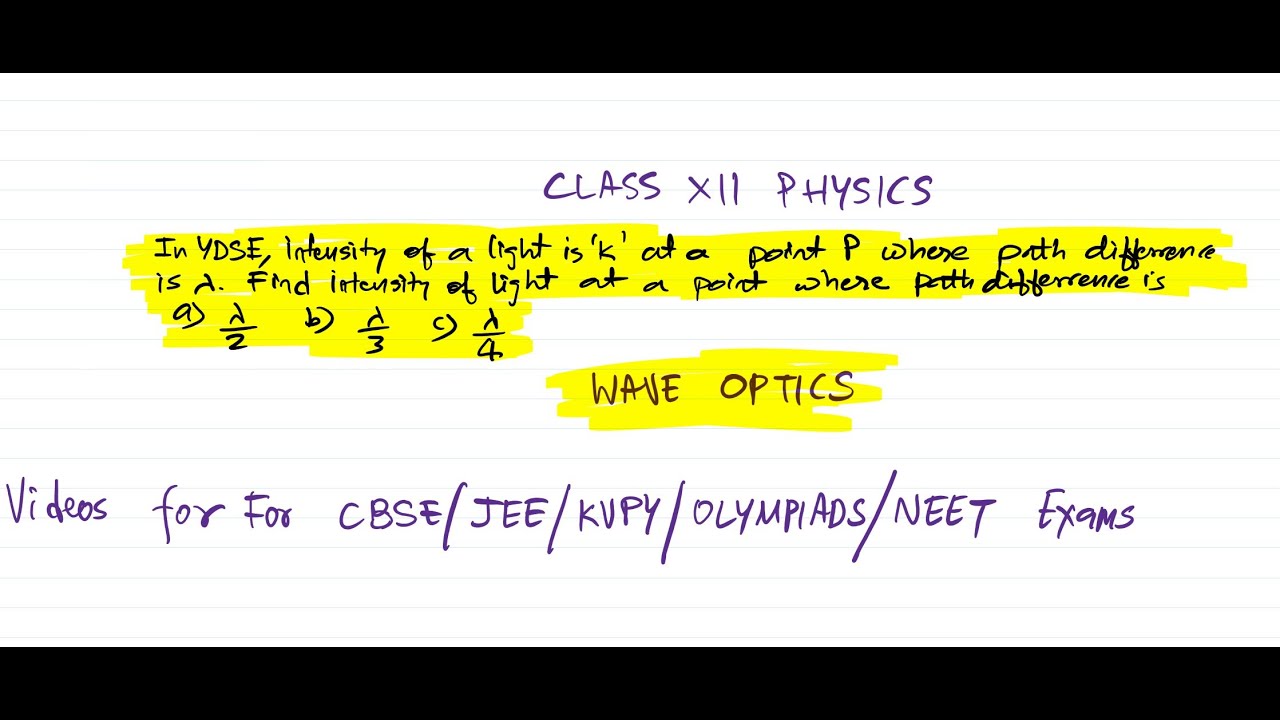 CLASS XII PHYSICS
In YDSE, intensity of a light is 'K' at a point P where path difference
is λ. Find intensity of light at a point where path difference is
a) λ/2 b) λ/3 c) λ/4
WAVE OPTICS
Videos for For CBSE/JEE/KVPY/OLYMPIADS/NEET Exams